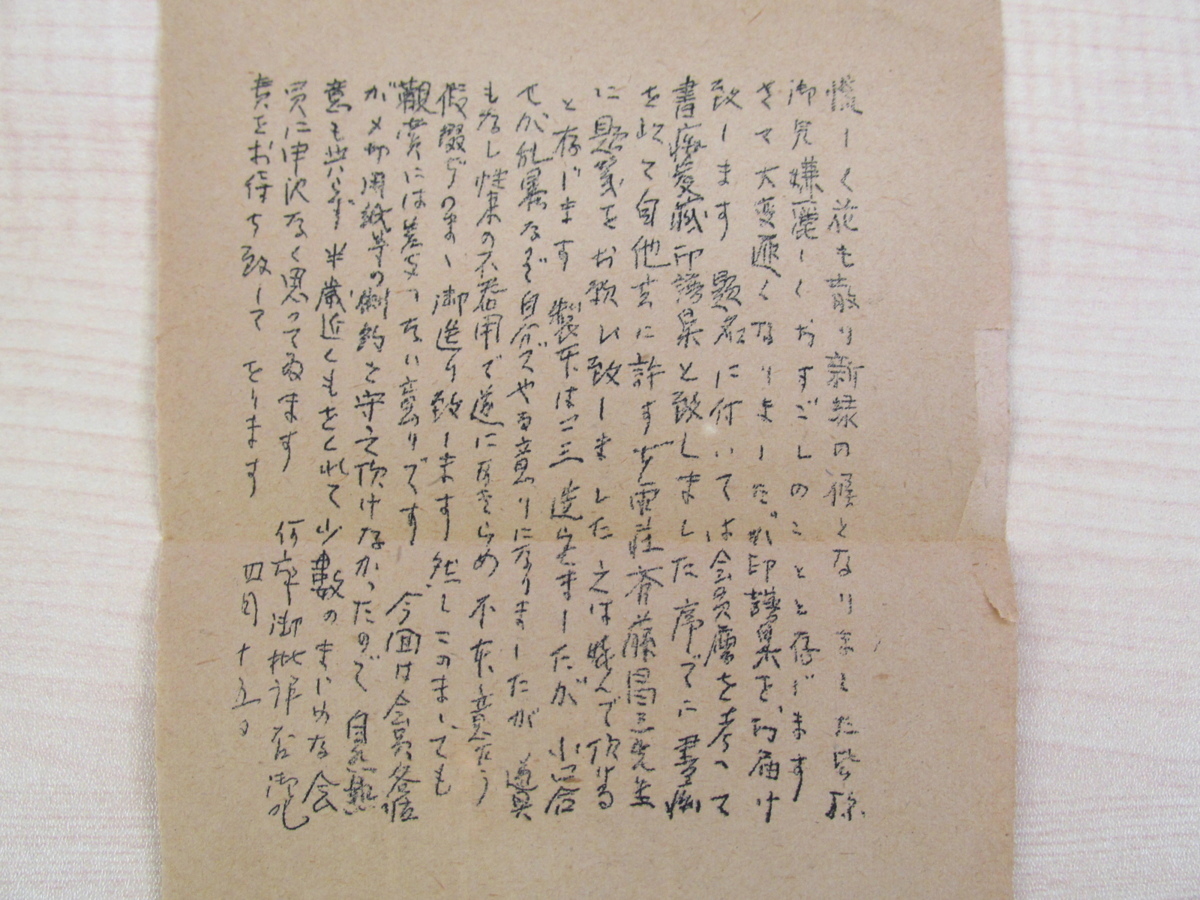 慌しく花も散り新緑の候となりました皆様
御機嫌麗しくおすごしのことと存じます
さて大変遅くなりました 印譜集をお届け
致します 題名に付いては会員層を考へて
書痴愛蔵印譜集と致しました 序でに書痴
を以て自他共に許す 荘斎藤昌三先生
に題箋をお願ひ致しました之は 喜んで頂ける
と存じます 製本は二三 造らせましたが
せが乱暴なので自分でやる意りになりましたが 道具
もなし性来の不器用で遂にあきらめ 不本意
仮綴ぢのまゝ御送り致します 然しこのまゝでも
観賞には差支へない意りです 今回は会員各位
が〆切用紙等の制約を守って頂けなかったので
意も 半歳近くもをくれて少数のまじめな会
員に申訳なく思って居ます 何卒御批評
責をお待ち致して をります 四月十五日